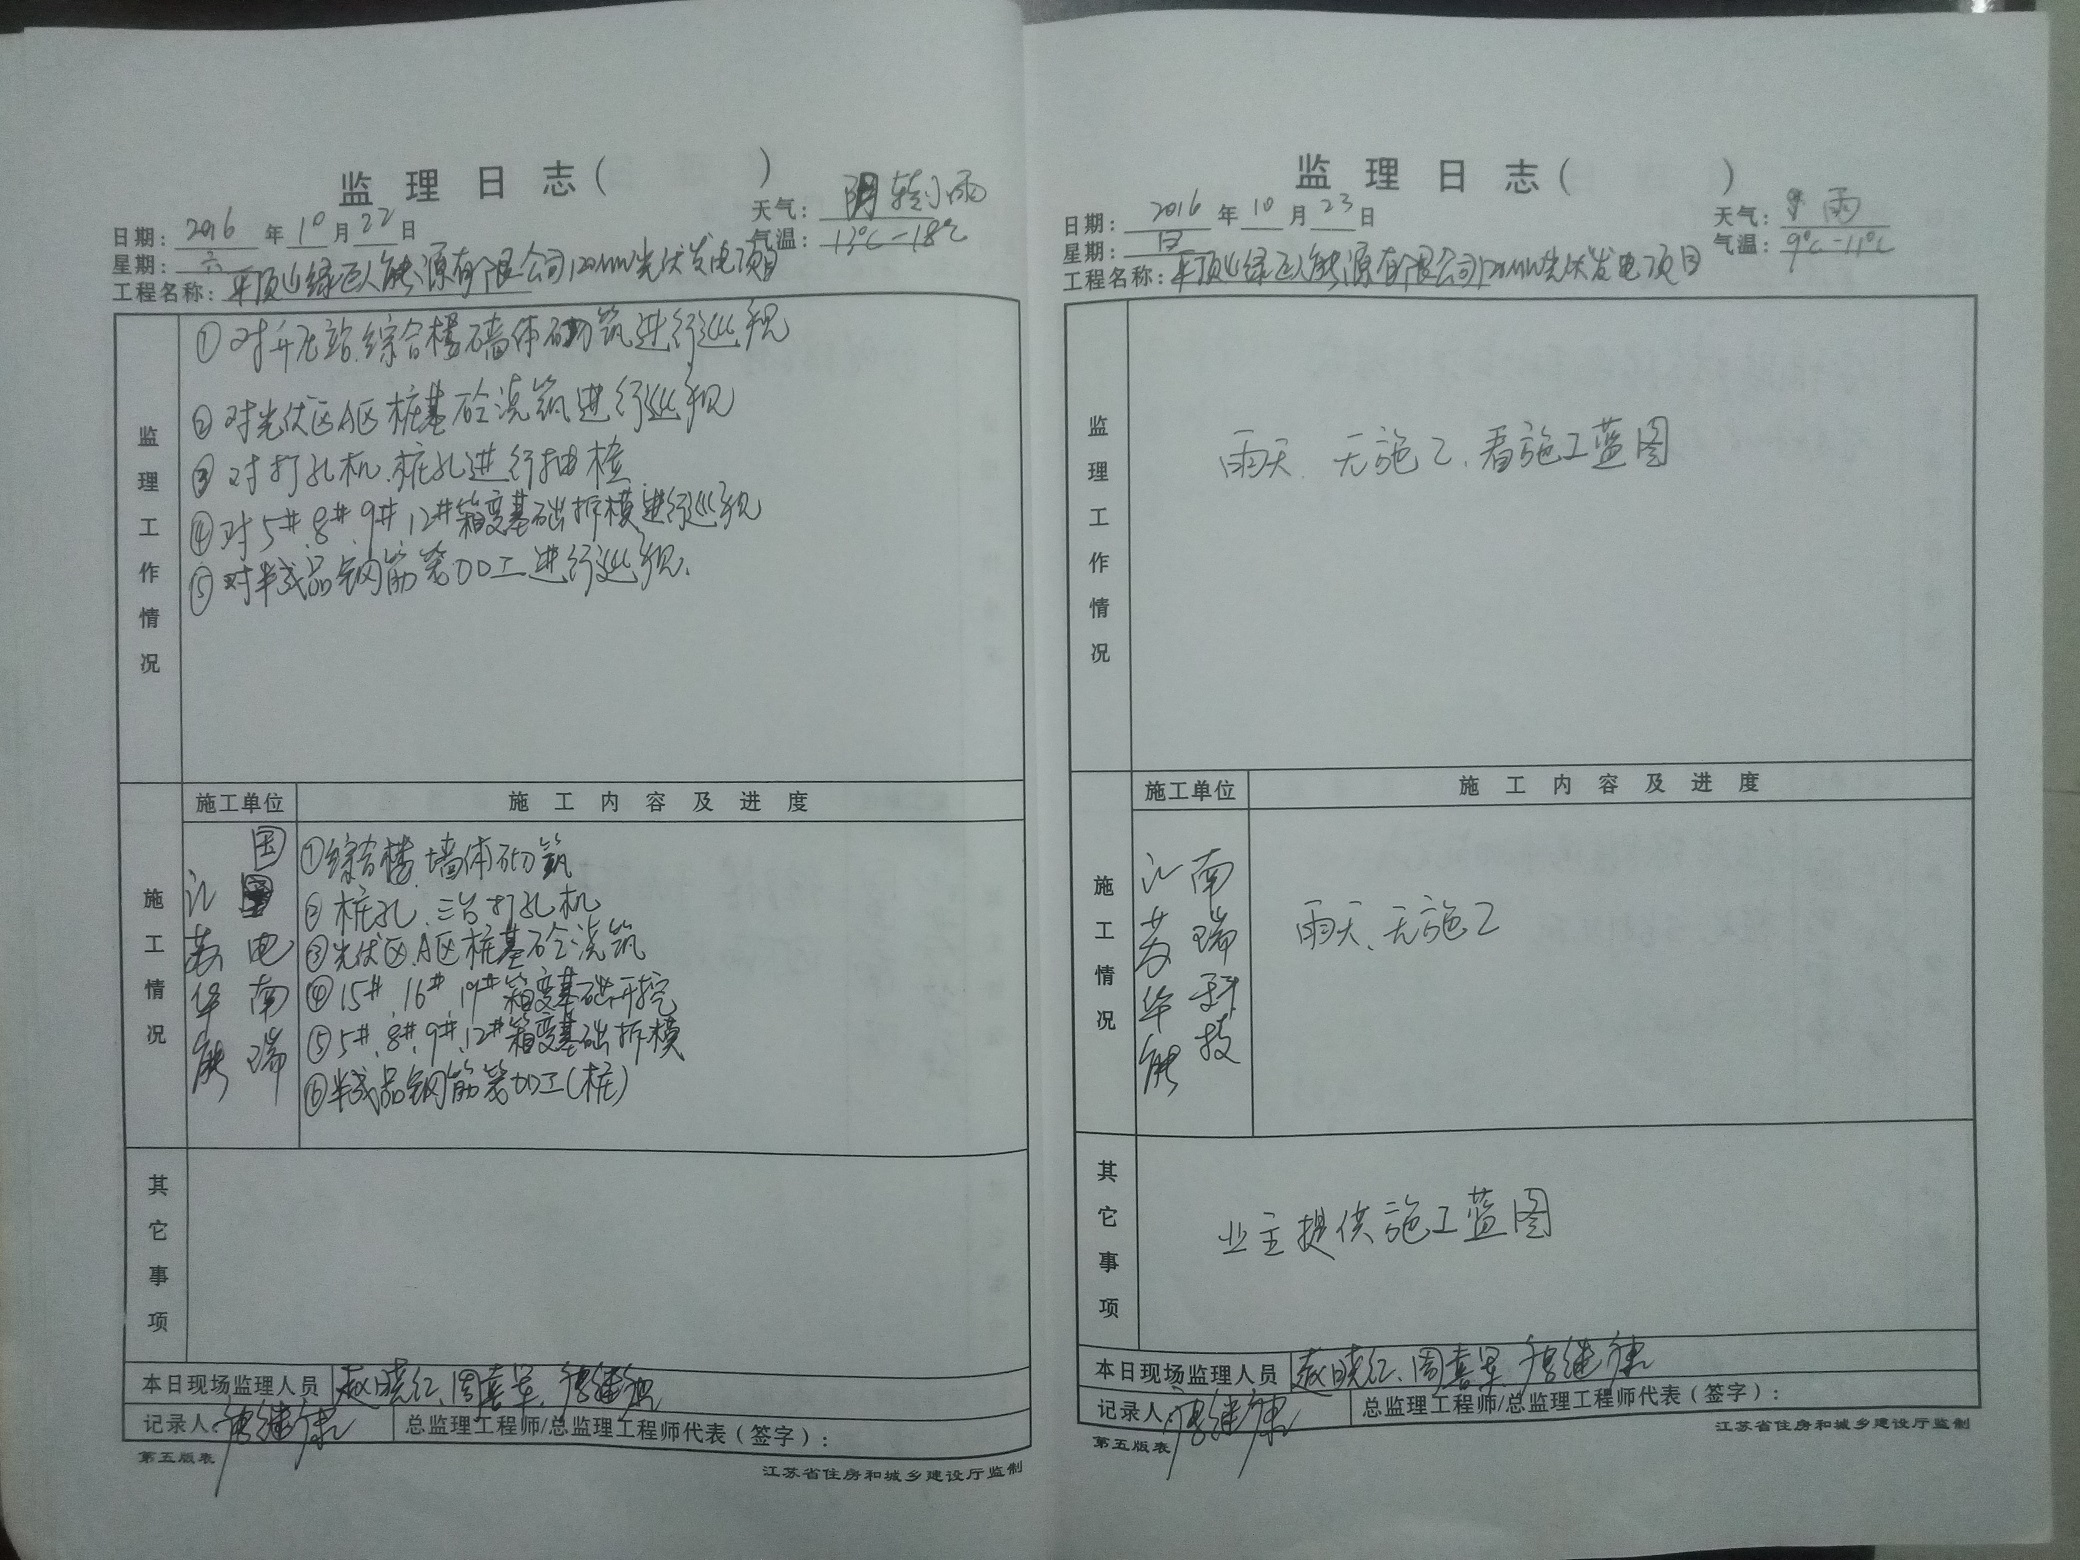 监理日志（ ）
日期：2016年10月22日
天气：阴转小雨
星期：六
气温：13℃-18℃
工程名称：平顶山绿巨人能源有限公司120MW光伏发电项目
监理工作情况
①对升压站.综合楼墙体砌筑进行巡视
②对光伏区A区桩基砼浇筑进行巡视
③对打孔机.桩孔进行抽检
④对5#.8#.9#.12#箱变基础拆模进行巡视
⑤对半成品钢筋笼加工进行巡视.
施工情况
施工单位
施工内容及进度
江苏华能
国电南瑞
①综合楼.墙体砌筑
②桩孔.三台打孔机
③光伏区.A区桩基砼浇筑
④15#.16#.19#箱变基础开挖
⑤5#.8#.9#.12#箱变基础拆模
⑥半成品钢筋笼加工(桩)
其它事项
本日现场监理人员 赵晓红、周喜军、唐继康
记录人：唐继康
总监理工程师/总监理工程师代表（签字）：
第五版表
江苏省住房和城乡建设厅监制
监理日志（ ）
日期：2016年10月23日
天气：雨
星期：日
气温：9℃-11℃
工程名称：平顶山绿巨人能源有限公司120MW光伏发电项目
监理工作情况
雨天.无施工.看施工蓝图
施工情况
施工单位
施工内容及进度
江苏华能
南瑞科技
雨天、无施工
其它事项
业主提供施工蓝图
本日现场监理人员 赵晓红、周喜军、唐继康
记录人：唐继康
总监理工程师/总监理工程师代表（签字）：
第五版表
江苏省住房和城乡建设厅监制